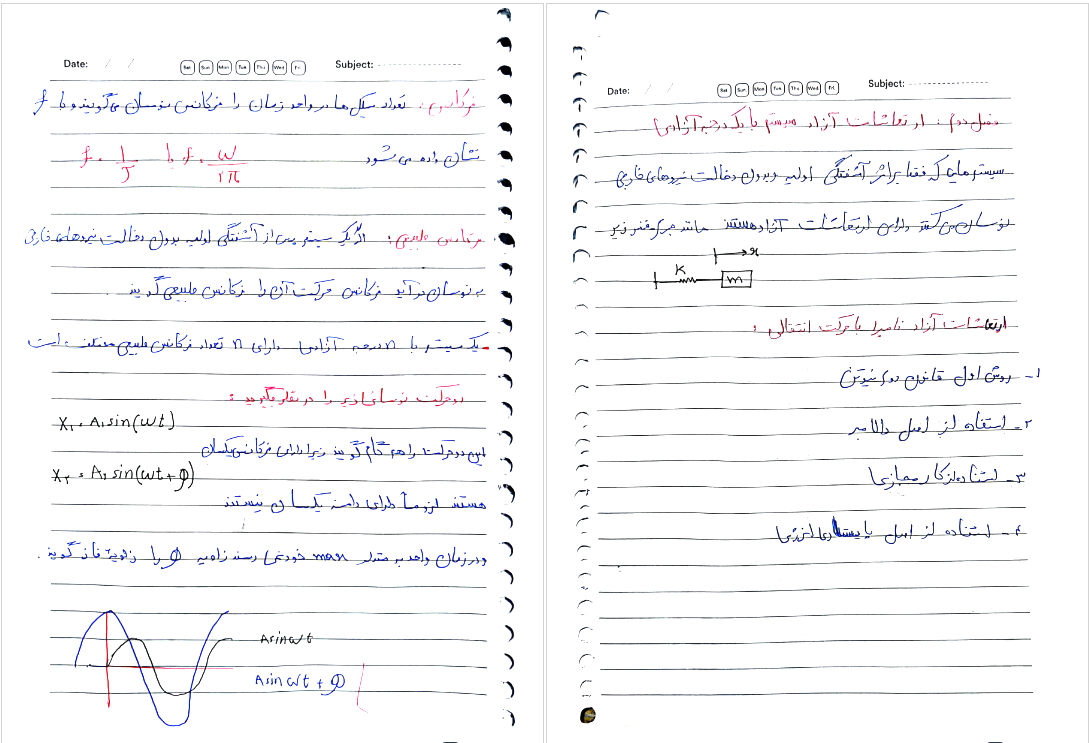 Date: / / Sat Sun Mon Tue Thu Wed Fri Subject:
فرکانس : تعداد سیکل ها در واحد زمان را فرکانس نوسان می گویند و با f
نشان داده می شود f = 1/T یا f = ω/2π
فرکانس طبیعی : اگر یک سیستم پس از آشفتگی اولیه بدون دخالت نیروهای خارجی
به نوسان در آید فرکانس حرکت آن را فرکانس طبیعی گویند .
یک سیستم با n درجه آزادی دارای n تعداد فرکانس طبیعی مختلف است
دو حرکت نوسانی زیر را در نظر بگیرید :
X₁ = A₁ sin(ωt)
این دو حرکت را هم گام گویند زیرا دارای فرکانس یکسان
X₂ = A₂ sin(ωt + φ)
هستند لزوماً دارای دامنه یکسان نیستند
و در زمان واحد به مقدار max خود نمی رسند زاویه φ را زاویه فاز گویند .
A sin ωt
A sin ωt + φ
Date: / / Sat Sun Mon Tue Thu Wed Fri Subject:
فصل دوم : ارتعاشات آزاد سیستم با یک درجه آزادی
سیستم هایی که فقط بر اثر آشفتگی اولیه و بدون دخالت نیروهای خارجی
نوسان می کنند دارای ارتعاشات آزاد هستند مانند جرم و فنر زیر
x
K m
ارتعاشات آزاد نامیرا با حرکت انتقالی :
۱- روش اول قانون دوم نیوتن
۲- استفاده از اصل دالامبر
۳- استفاده از کار مجازی
۴- استفاده از اصل پایستاری انرژی